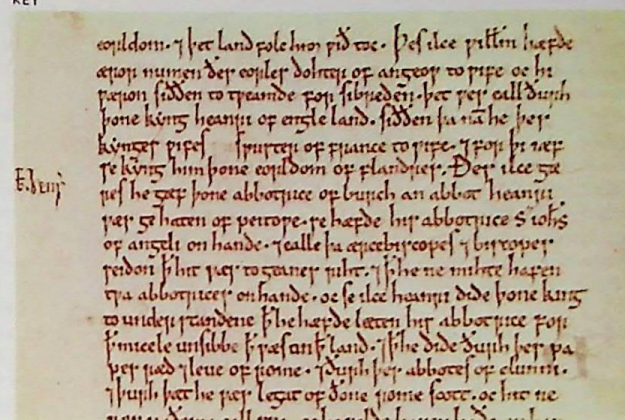 KEY
eorldom. ⁊ þet land folc him ƿið toc. Þes ilce ƿillm̄ hæfde
æror numen ðes eorles dohter of angeoƿ to ƿife oc hi
ƿæron siðden totƿeamde for sibreden. þet ƿes eall ðurh
þone kyng heanri of engle land. siðden þa nā he þes
kynges ƿifes sƿuster of france to ƿife. ⁊ for þi iæf
se kyng him þone eorldom of flandres. Ðes ilce gæ
res he gæf þone abbotrice of burch an abbot heanri
ƿæs gehaten of peitoƿe. se hæfde his abbotrice S̄ ioh̄s
of angeli on hande. ⁊ ealle þa ærcebiscopes ⁊ biscopes
seidon ꝥ hit ƿæs togeanes riht. ⁊ ꝥ he ne mihte hafen
tƿa abbotrices on hande. oc se ilce heanri dide þone king
to understandene ꝥ he hæfde læten his abbotrice for
ꝥ micele unsibbe ꝥ ƿæs on ꝥ land. ⁊ ꝥ he dide ðurh þes pa
pes ræd ⁊ leue of rome. ⁊ ðurh þes abbotes of clunni.
⁊ þurh þæt he ƿæs legat of ðone rome scott. oc hit ne